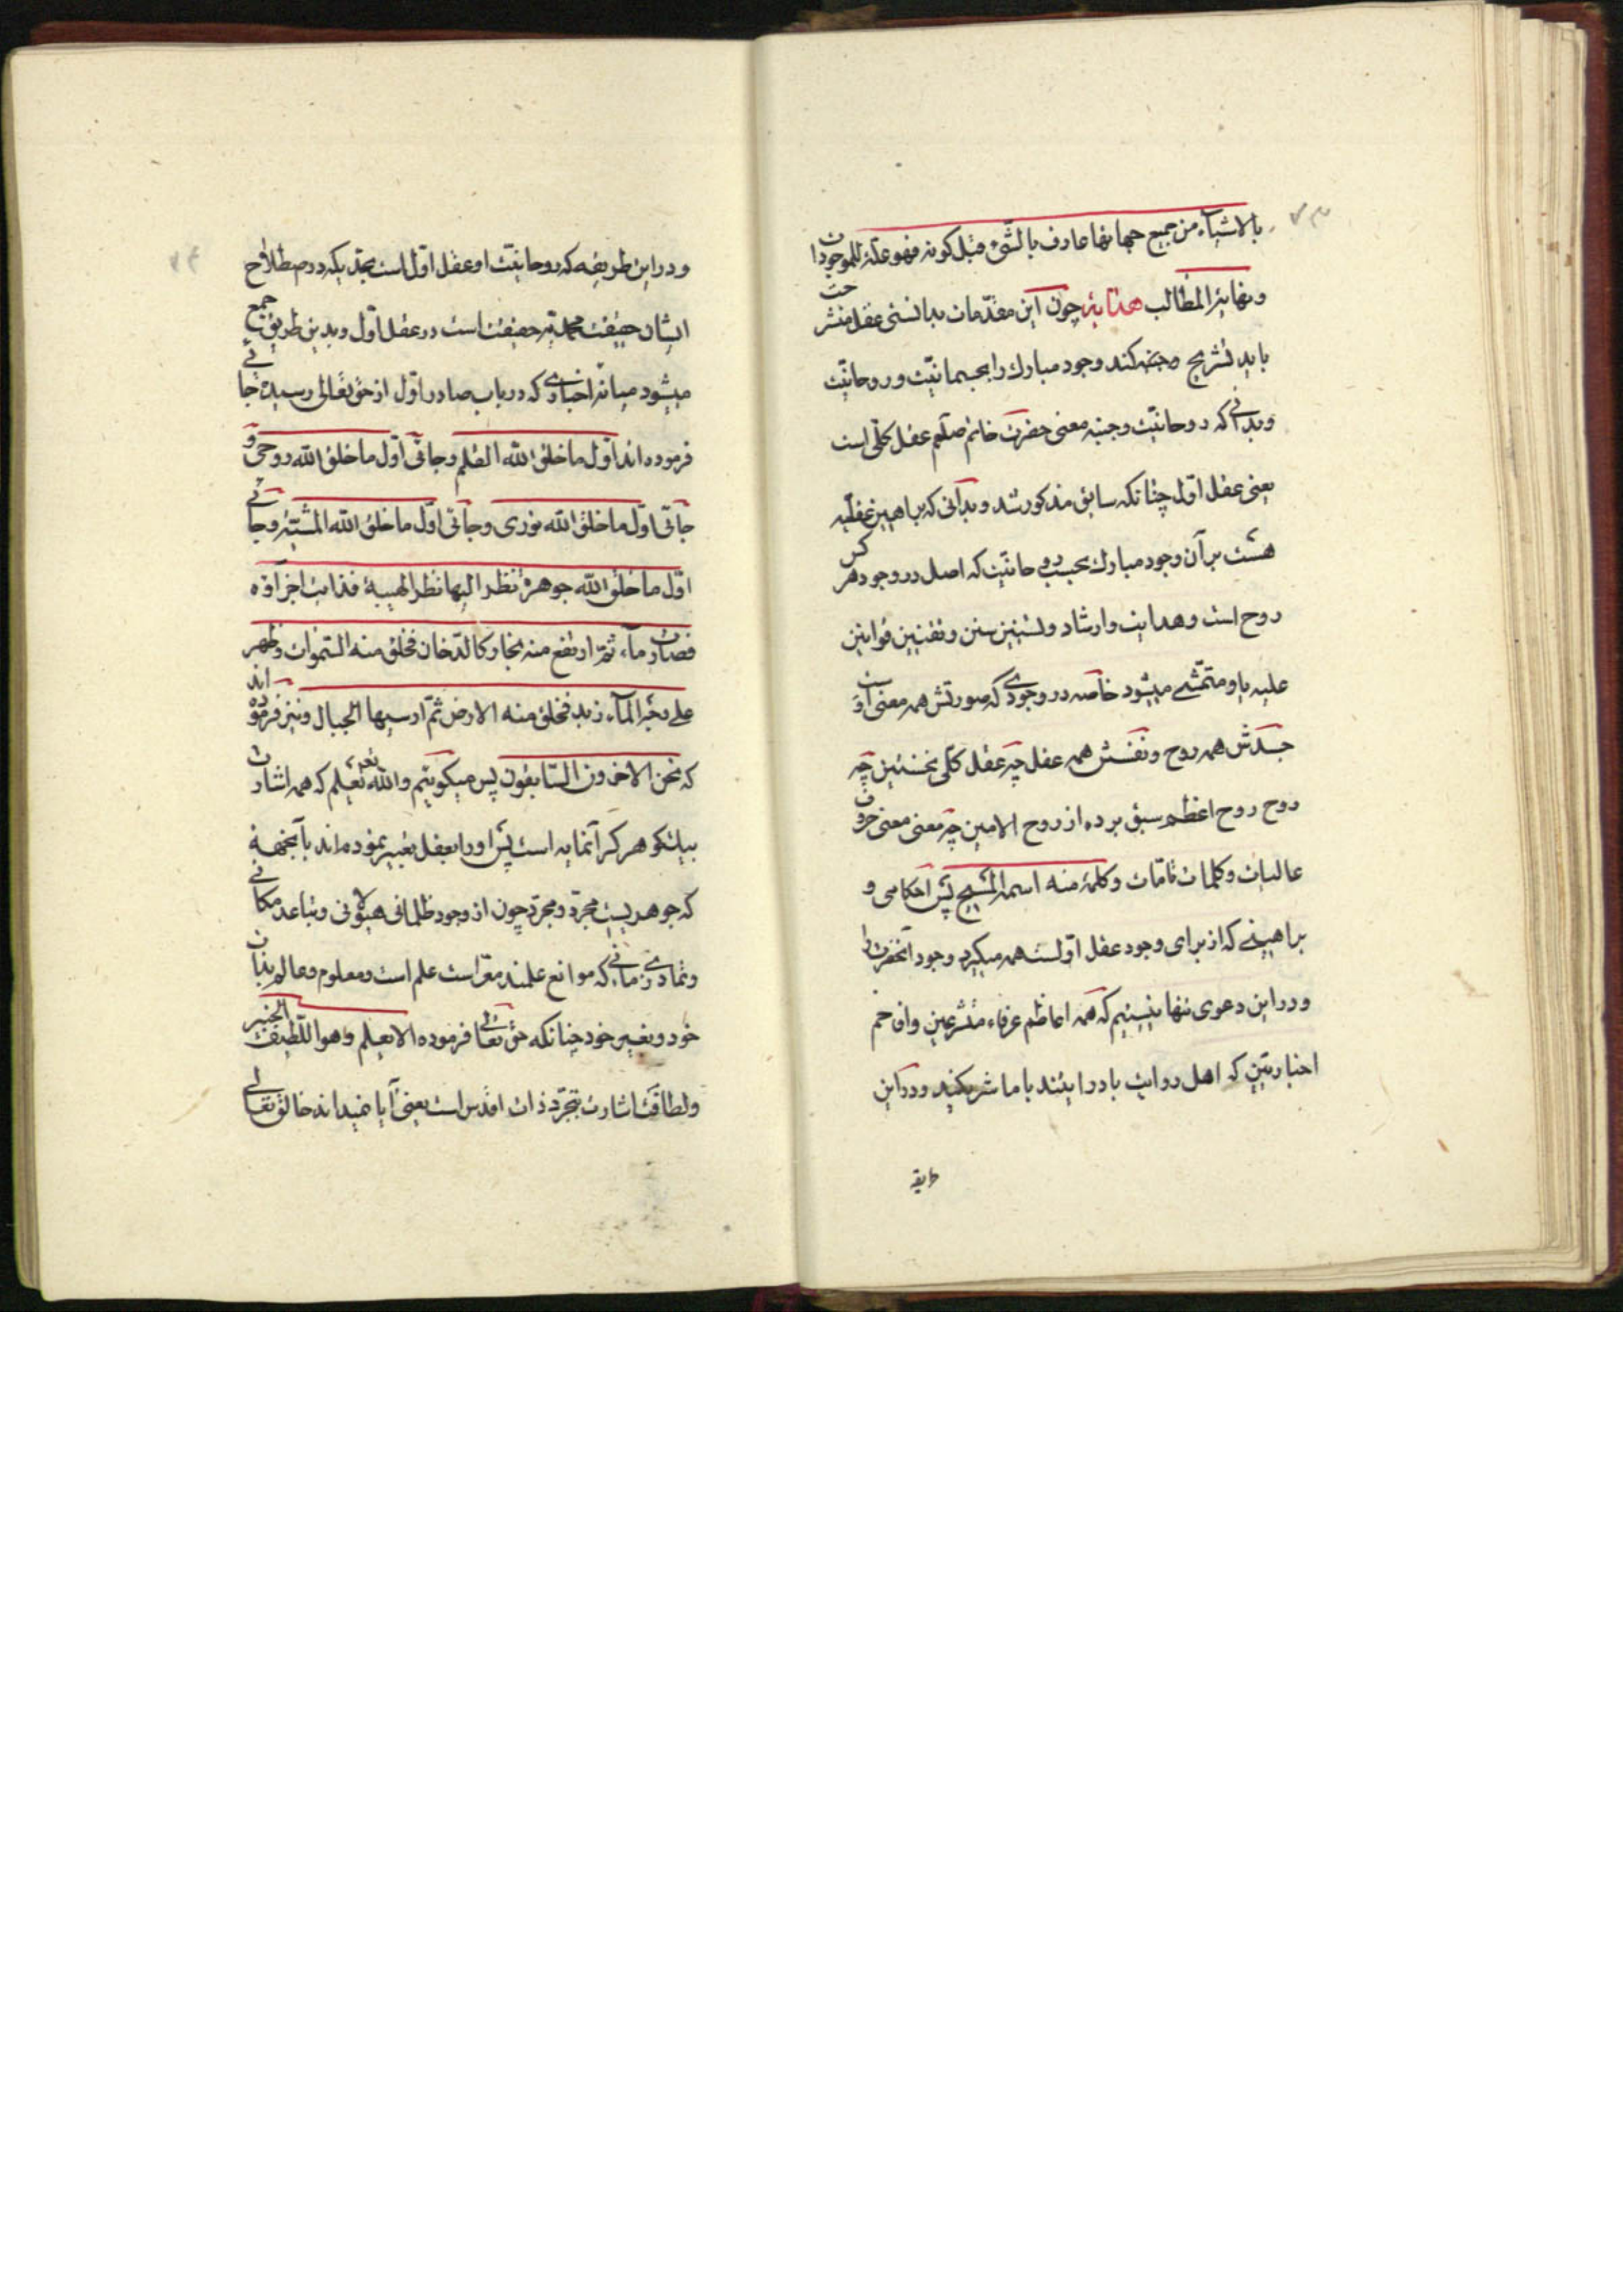 ۷۳
بالاشیآء من جمیع جهاتها عارف بالشّیء قبل کونه فهو علّة للموجودات
ونهایة المطالب هدایة چون این مقدّمات بدانستی عقل منشرحت
باید تشریح محضه کند وجود مبارك را بجسمانیّت وروحانیّت
وبدانی که روحانیّت وجنبه معنی حضرت خاتم صلعم عقل کلّی است
یعنی عقل اوّل چنانکه سابق مذکور شد وبدانی که براهین عقلیه
هست بر آن وجود مبارك بحسب روحانیّت که اصل در وجود هرکس
روح است وهدایت وارشاد وتسنین سنن وتقنین قوانین
علیه باو متمشّی میشود خاصه در وجودی که صورتش همه معنی است و
جسدش همه روح ونفسش همه عقل چه عقل کلّی نخستین چه
روح روح اعظم سبق برده از روح الامین چه معنی معنی حروف
عالیات وکلمات تامّات وکلمة منه اسمه المسیح پس احکامی و
براهینی که از برای وجود عقل اوّلست همه میگیرد وجود آنحضرت را
ودر این دعوی تنها نیستیم که همه اعاظم عرفاء متشرعین وافاخم
اخباریّین که اهل روایت با درایتند با ما شریکند ودر این
طریقه
۷۴
ودر این طریقه که روحانیّت او عقل اوّل است بحدّیکه در اصطلاح
ایشان حقیقت محمدیّه حقیقت است در عقل اوّل وبدین طریق جمع
میشود میانه اخباری که در باب صادر اوّل از حق تعالی رسیده جائی
فرموده اند اوّل ما خلق الله القلم وجائی اوّل ما خلق الله روحی و
جائی اوّل ما خلق الله نوری وجائی اوّل ما خلق الله المشیّة وجائی
اوّل ما خلق الله جوهرة نظر الیها نظر الهیبة فذابت اجزآؤه
فصارت مآء ثمّ ارتفع منه بخار کالدّخان فخلق منه السّموات وظهر
علی وجه المآء زبد فخلق منه الارض ثمّ ارسیها الجبال ونیز فرموده اند
که نحن الاخرون السّابقون پس میکوئیم والله تعالی یعلم که همه اشارت
بیك کوهر کرانمایه است پس او را بعقل تعبیر نموده اند بآنجهة
که جوهریست مجرّد ومجرّد چون از وجود ظلمانی هیولانی وتباعد مکانی
وتمادی زمانی که موانع علمند معرّاست علم است ومعلوم وعالم بذات
خود وبغیر خود چنانکه حق تعالی فرموده الا یعلم وهو اللّطیف الخبیر
ولطافت اشارت بتجرّد ذات اقدس است یعنی آیا نمیداند خالق تعالی